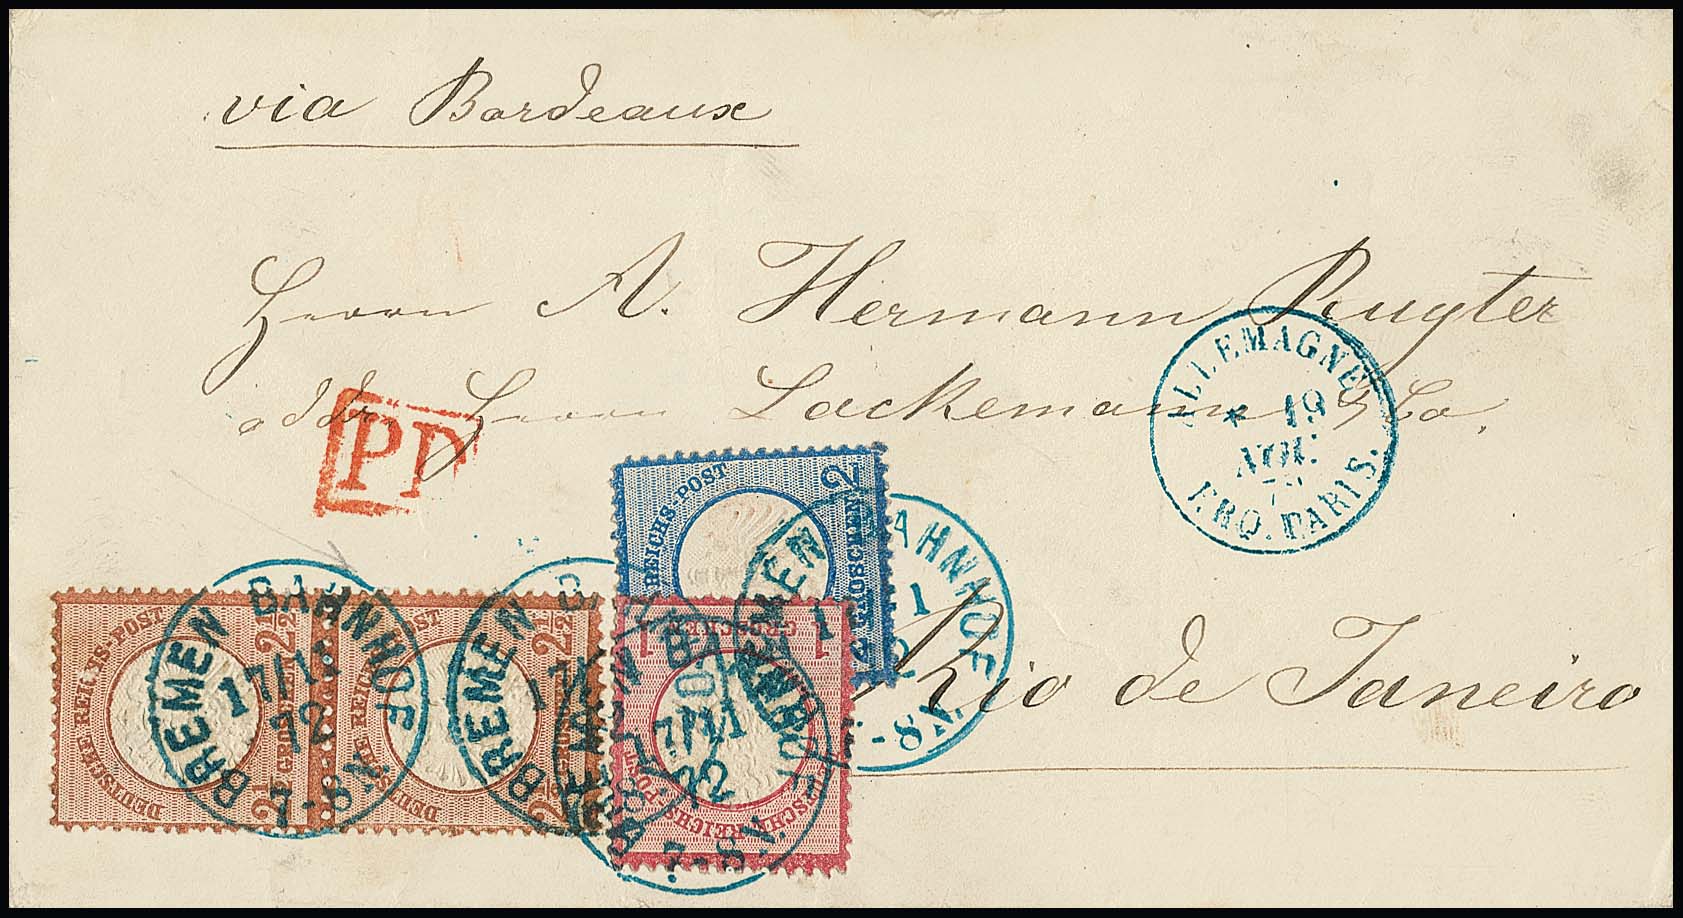 via Bordeaux
Herrn A. Hermann Rugter
oddr Herrn Lackemann & Co.
Rio de Janeiro
PD
ALLEMAGNE
* 19
NOV.
72
ERQ. PARIS.
BREMEN BAHNHOF
17/11
72
7-8 N.
BREMEN B
17/
BREMEN BAHNHOF
17/11
72
7-8 N.
BREMEN BAHNHOF
1
2
-8 N.
DEUTSCHE REICHS-POST
2½ GROSCHEN 2½
DEUTSCHE REICHS-POST
2½ GROSCHEN 2½
REICHS-POST
2 GROSCHEN 2
1 GROSCHEN 1
DEUTSCHE REICHS-POST